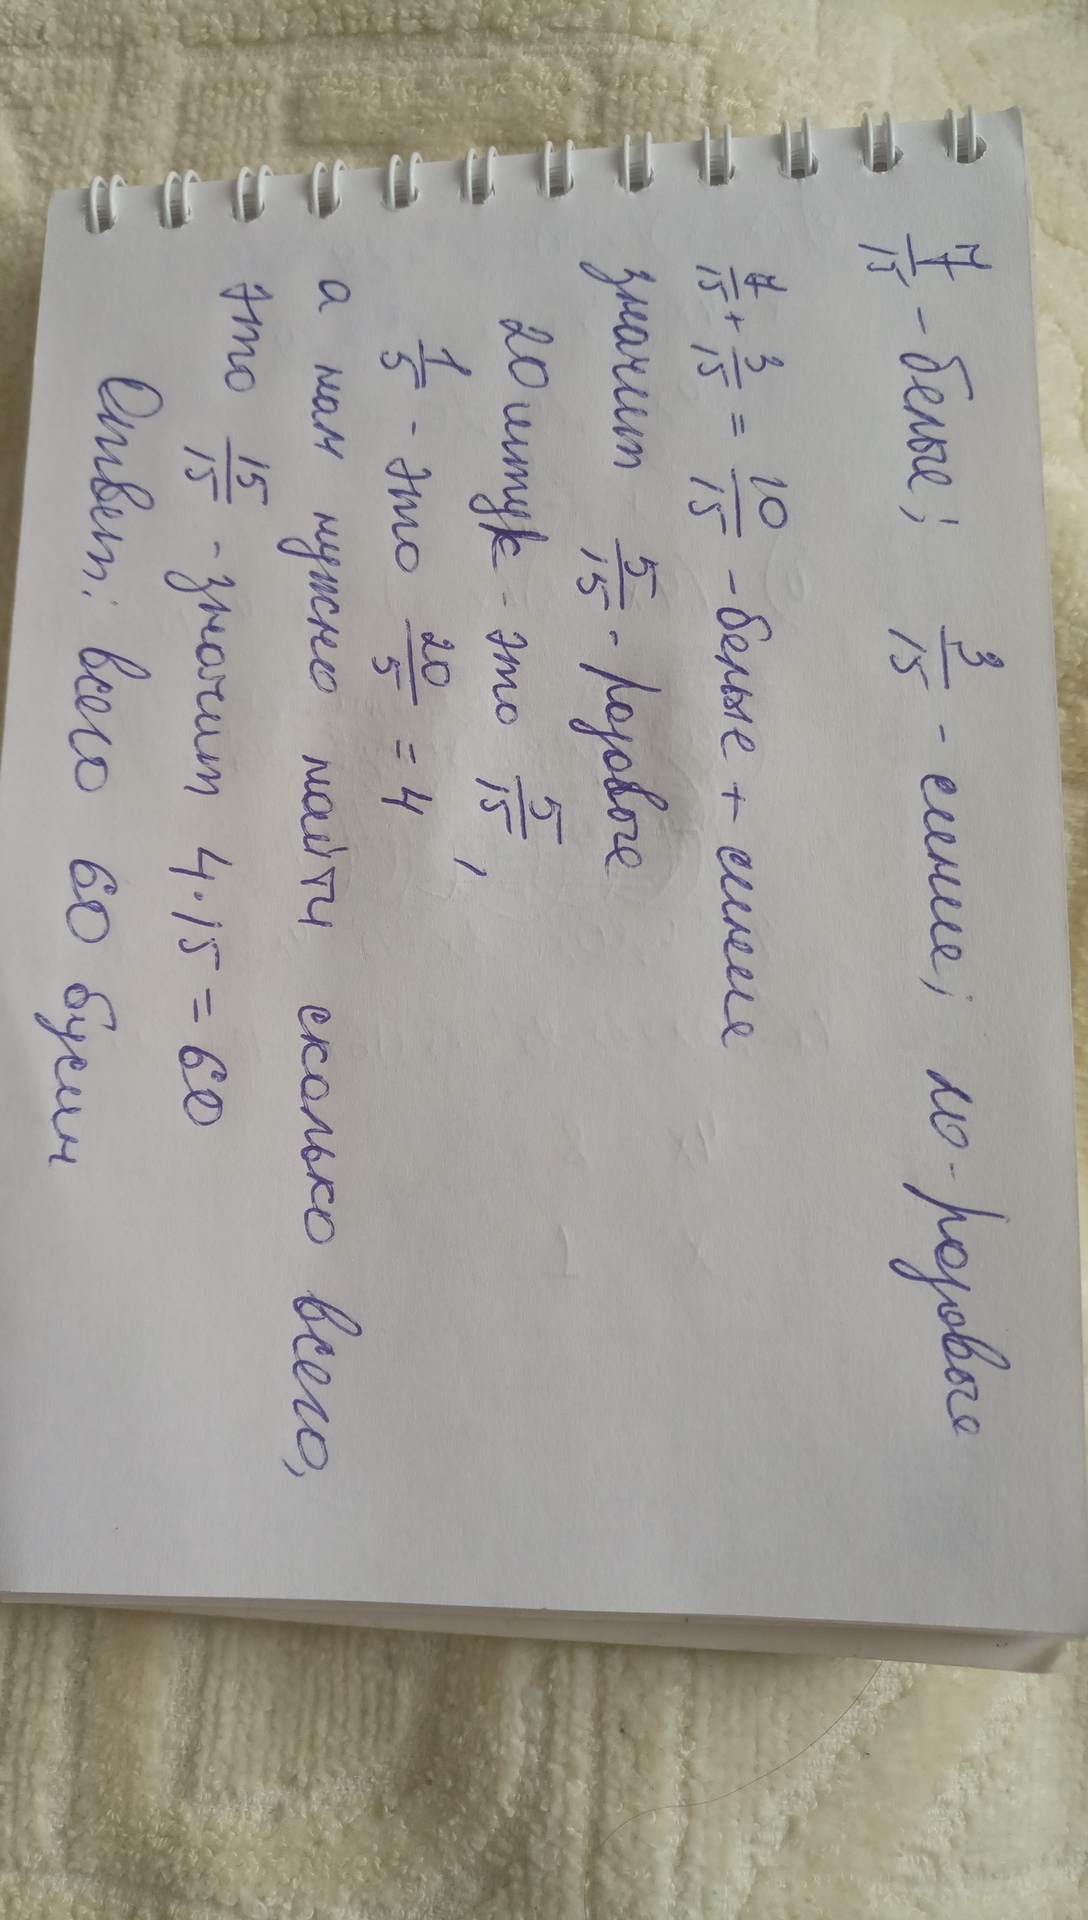 7/15 - белые; 3/15 - синие; 20 - розовые
7/15 + 3/15 = 10/15 - белые + синие
значит 5/15 - розовые
20 штук - это 5/15,
1/5 - это 20/5 = 4
а нам нужно найти сколько всего,
это 15/15 - значит 4·15 = 60
Ответ: всего 60 бусин